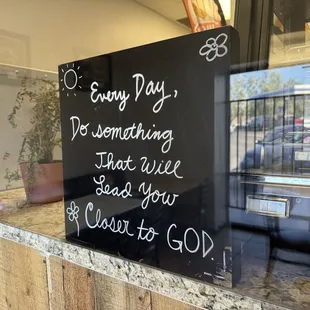 Every Day,
Do something
That will
Lead You
Closer to GOD.